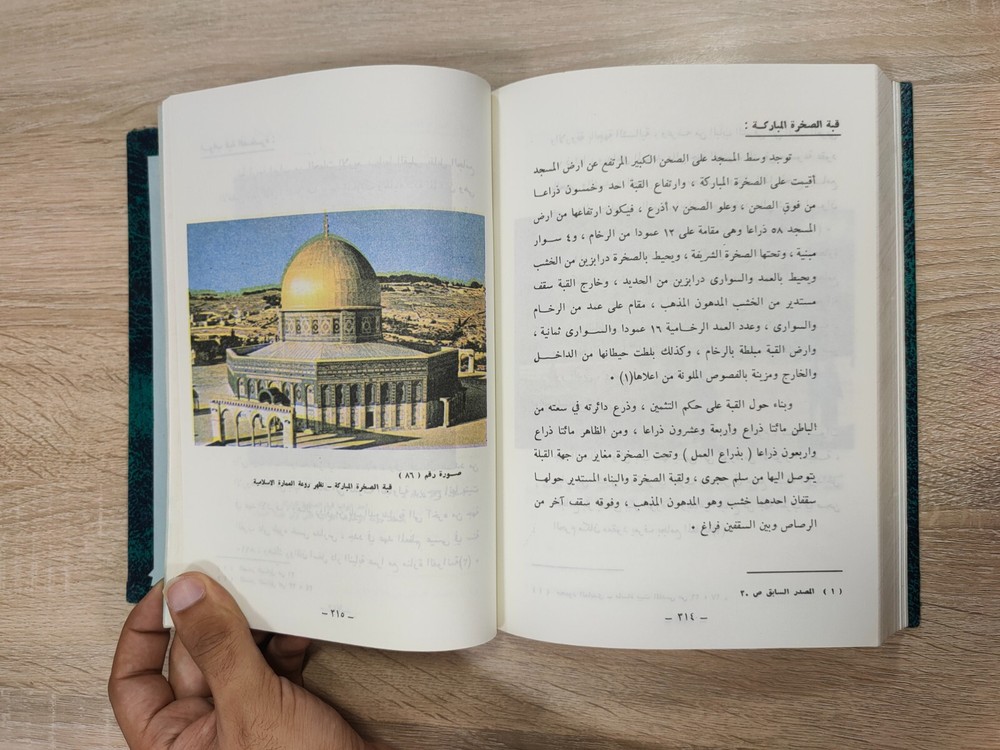 قبة الصخرة المباركة :
توجد وسط المسجد على الصحن الكبير المرتفع عن ارض المسجد
أقيمت على الصخرة المباركة ، وارتفاع القبة احد وخمسون ذراعا
من فوق الصحن ، وعلو الصحن ٧ أذرع ، فيكون ارتفاعها من ارض
المسجد ٥٨ ذراعا وهى مقامة على ١٢ عمودا من الرخام ، و٤ سوار
مبنية ، وتحتها الصخرة الشريفة ، ويحيط بالصخرة درابزين من الخشب
ويحيط بالعمد والسوارى درابزين من الحديد ، وخارج القبة سقف
مستدير من الخشب المدهون المذهب ، مقام على عمد من الرخام
والسوارى ، وعدد العمد الرخامية ١٦ عمودا والسوارى ثمانية ،
وارض القبة مبلطة بالرخام ، وكذلك بلطت حيطانها من الداخل
والخارج ومزينة بالفصوص الملونة من اعلاها(١) ٠
وبناء حول القبة على حكم التثمين ، وذرع دائرته في سعته من
الباطن مائتا ذراع وأربعة وعشرون ذراعا ، ومن الظاهر مائتا ذراع
واربعون ذراعا ( بذراع العمل ) وتحت الصخرة مغاير من جهة القبلة
يتوصل اليها من سلم حجرى ، ولقبة الصخرة والبناء المستدير حولها
سقفان احدهما خشب وهو المدهون المذهب ، وفوقه سقف آخر من
الرصاص وبين السقفين فراغ ٠
( ١ ) المصدر السابق ص ٢٠
– ٣١٤ –
صورة رقم ( ٨٦ )
قبة الصخرة المباركة – تظهر روعة العمارة الاسلامية
– ٣١٥ –